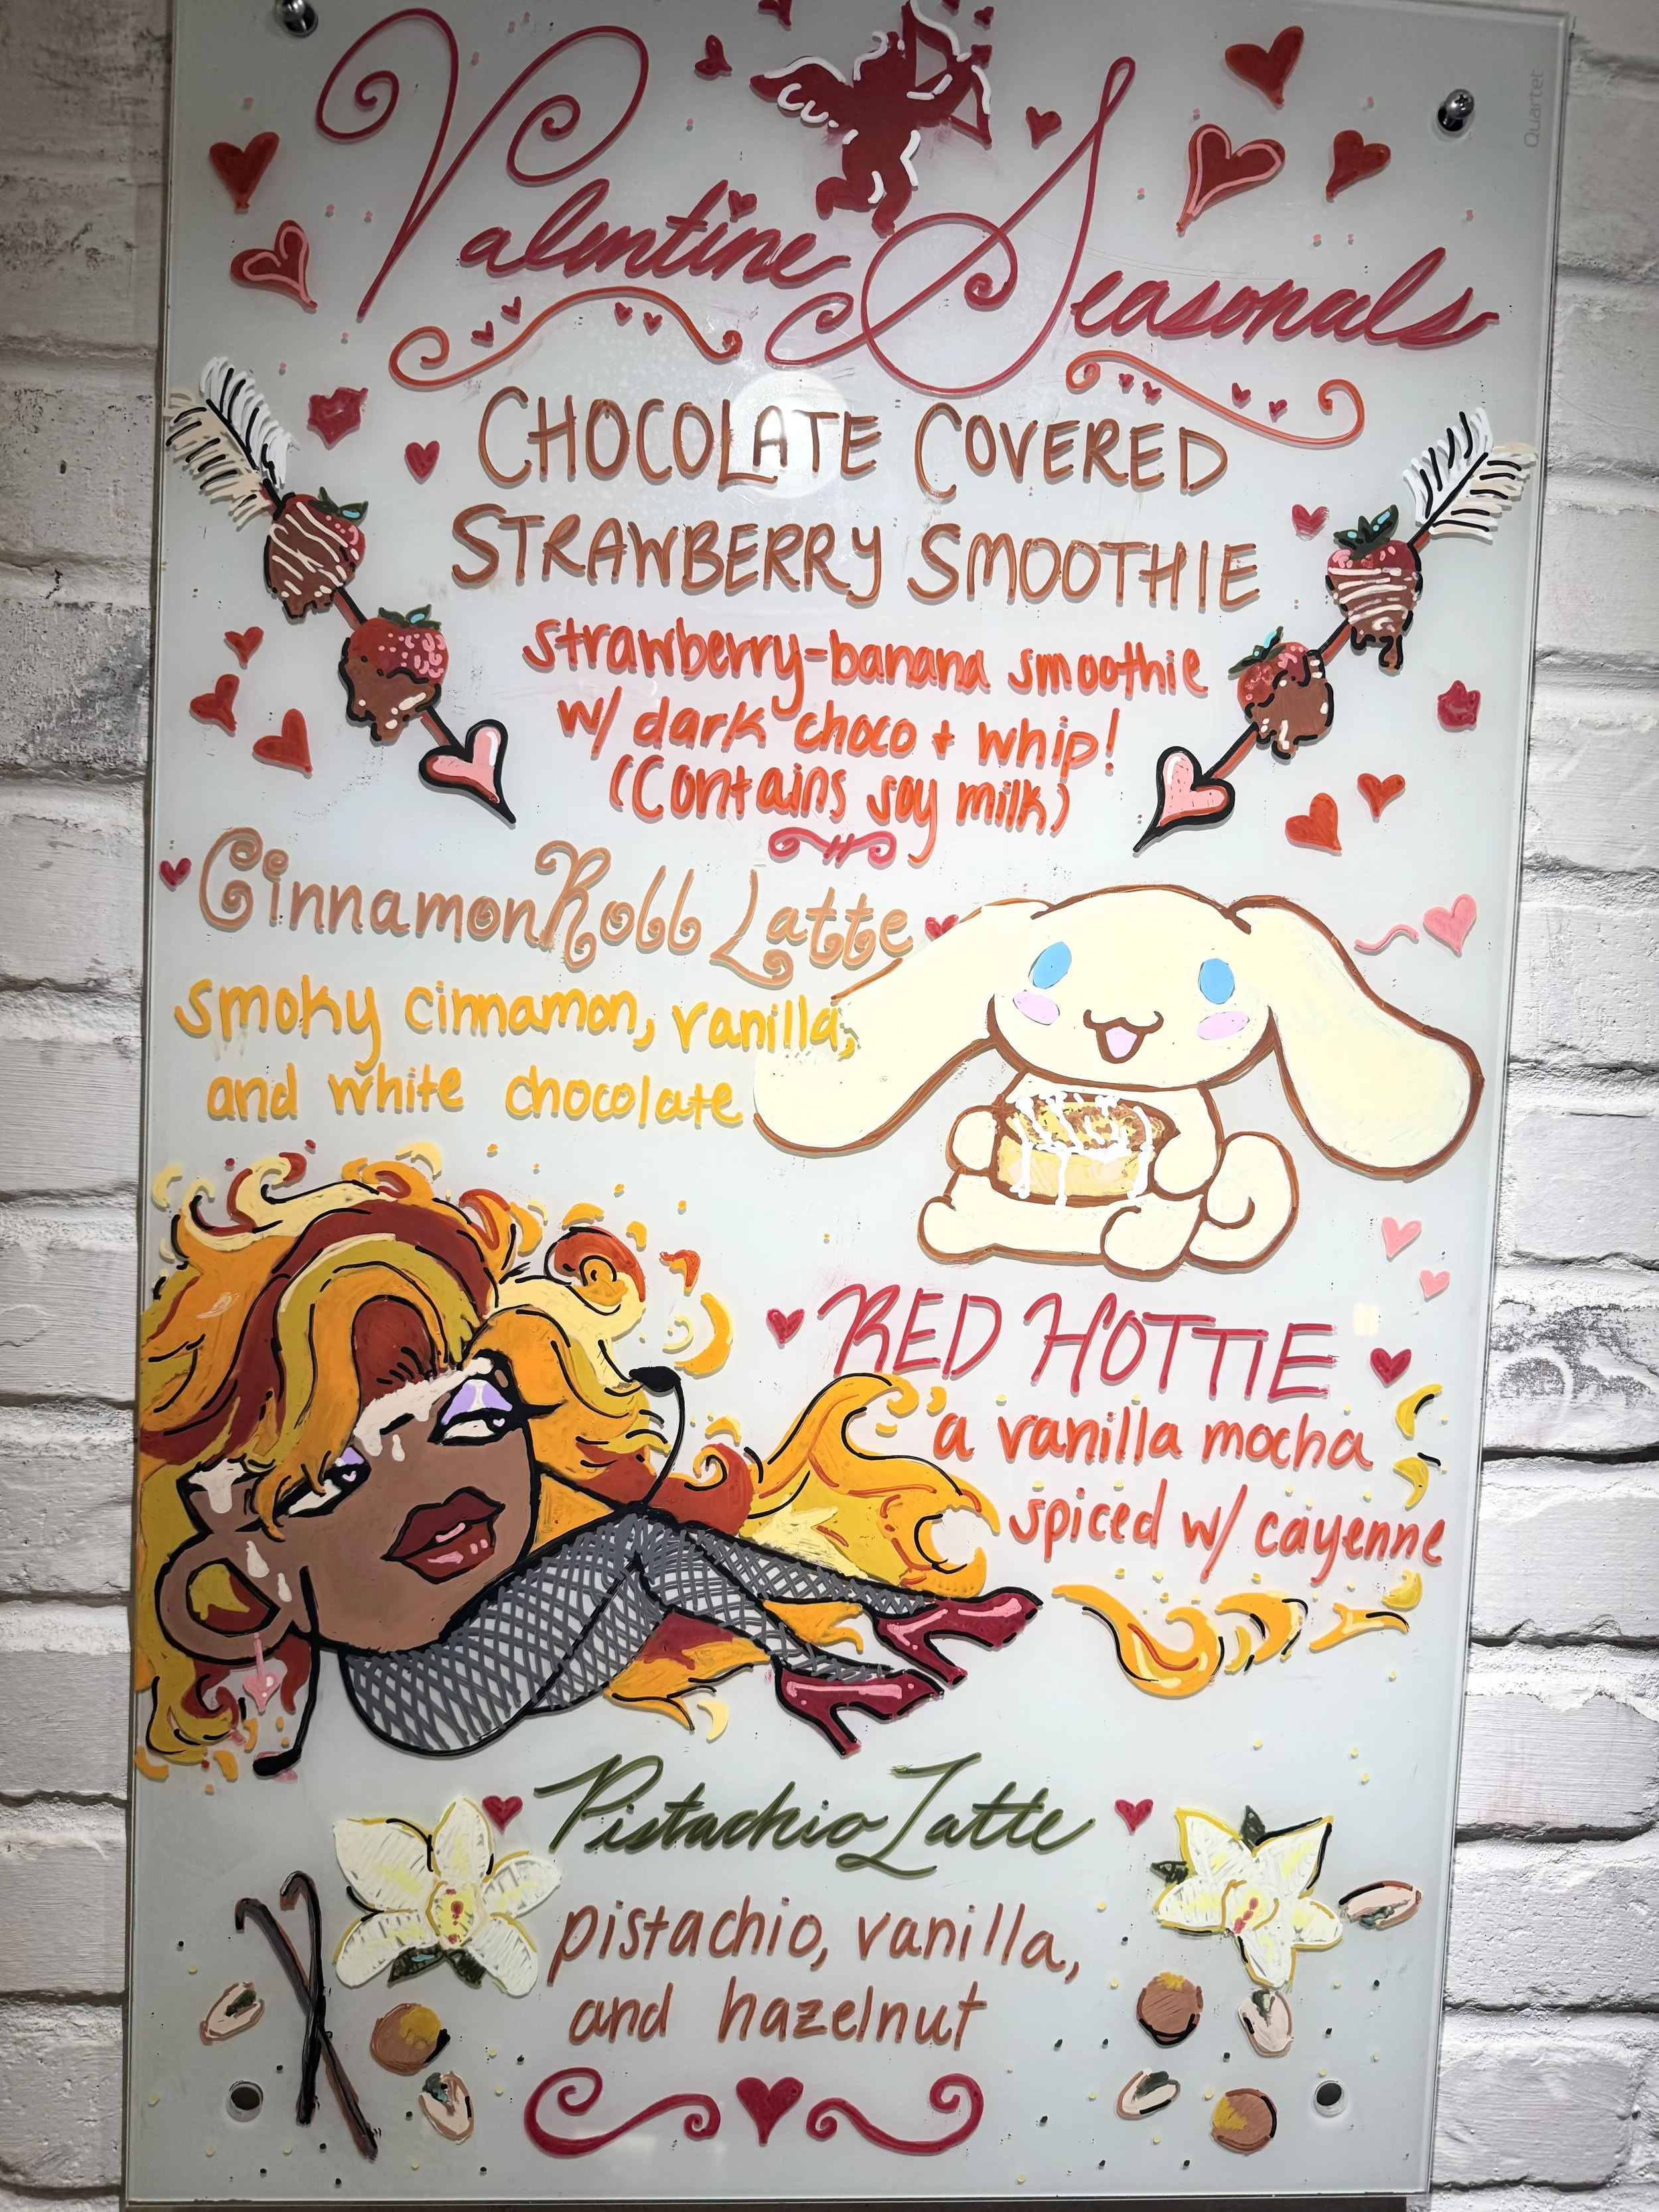 Valentine Seasonals
CHOCOLATE COVERED
STRAWBERRY SMOOTHIE
strawberry-banana smoothie
w/ dark choco + whip!
(Contains soy milk)
Cinnamon Roll Latte
smoky cinnamon, vanilla,
and white chocolate
RED HOTTIE
a vanilla mocha
spiced w/ cayenne
Pistachio Latte
pistachio, vanilla,
and hazelnut
Quartet